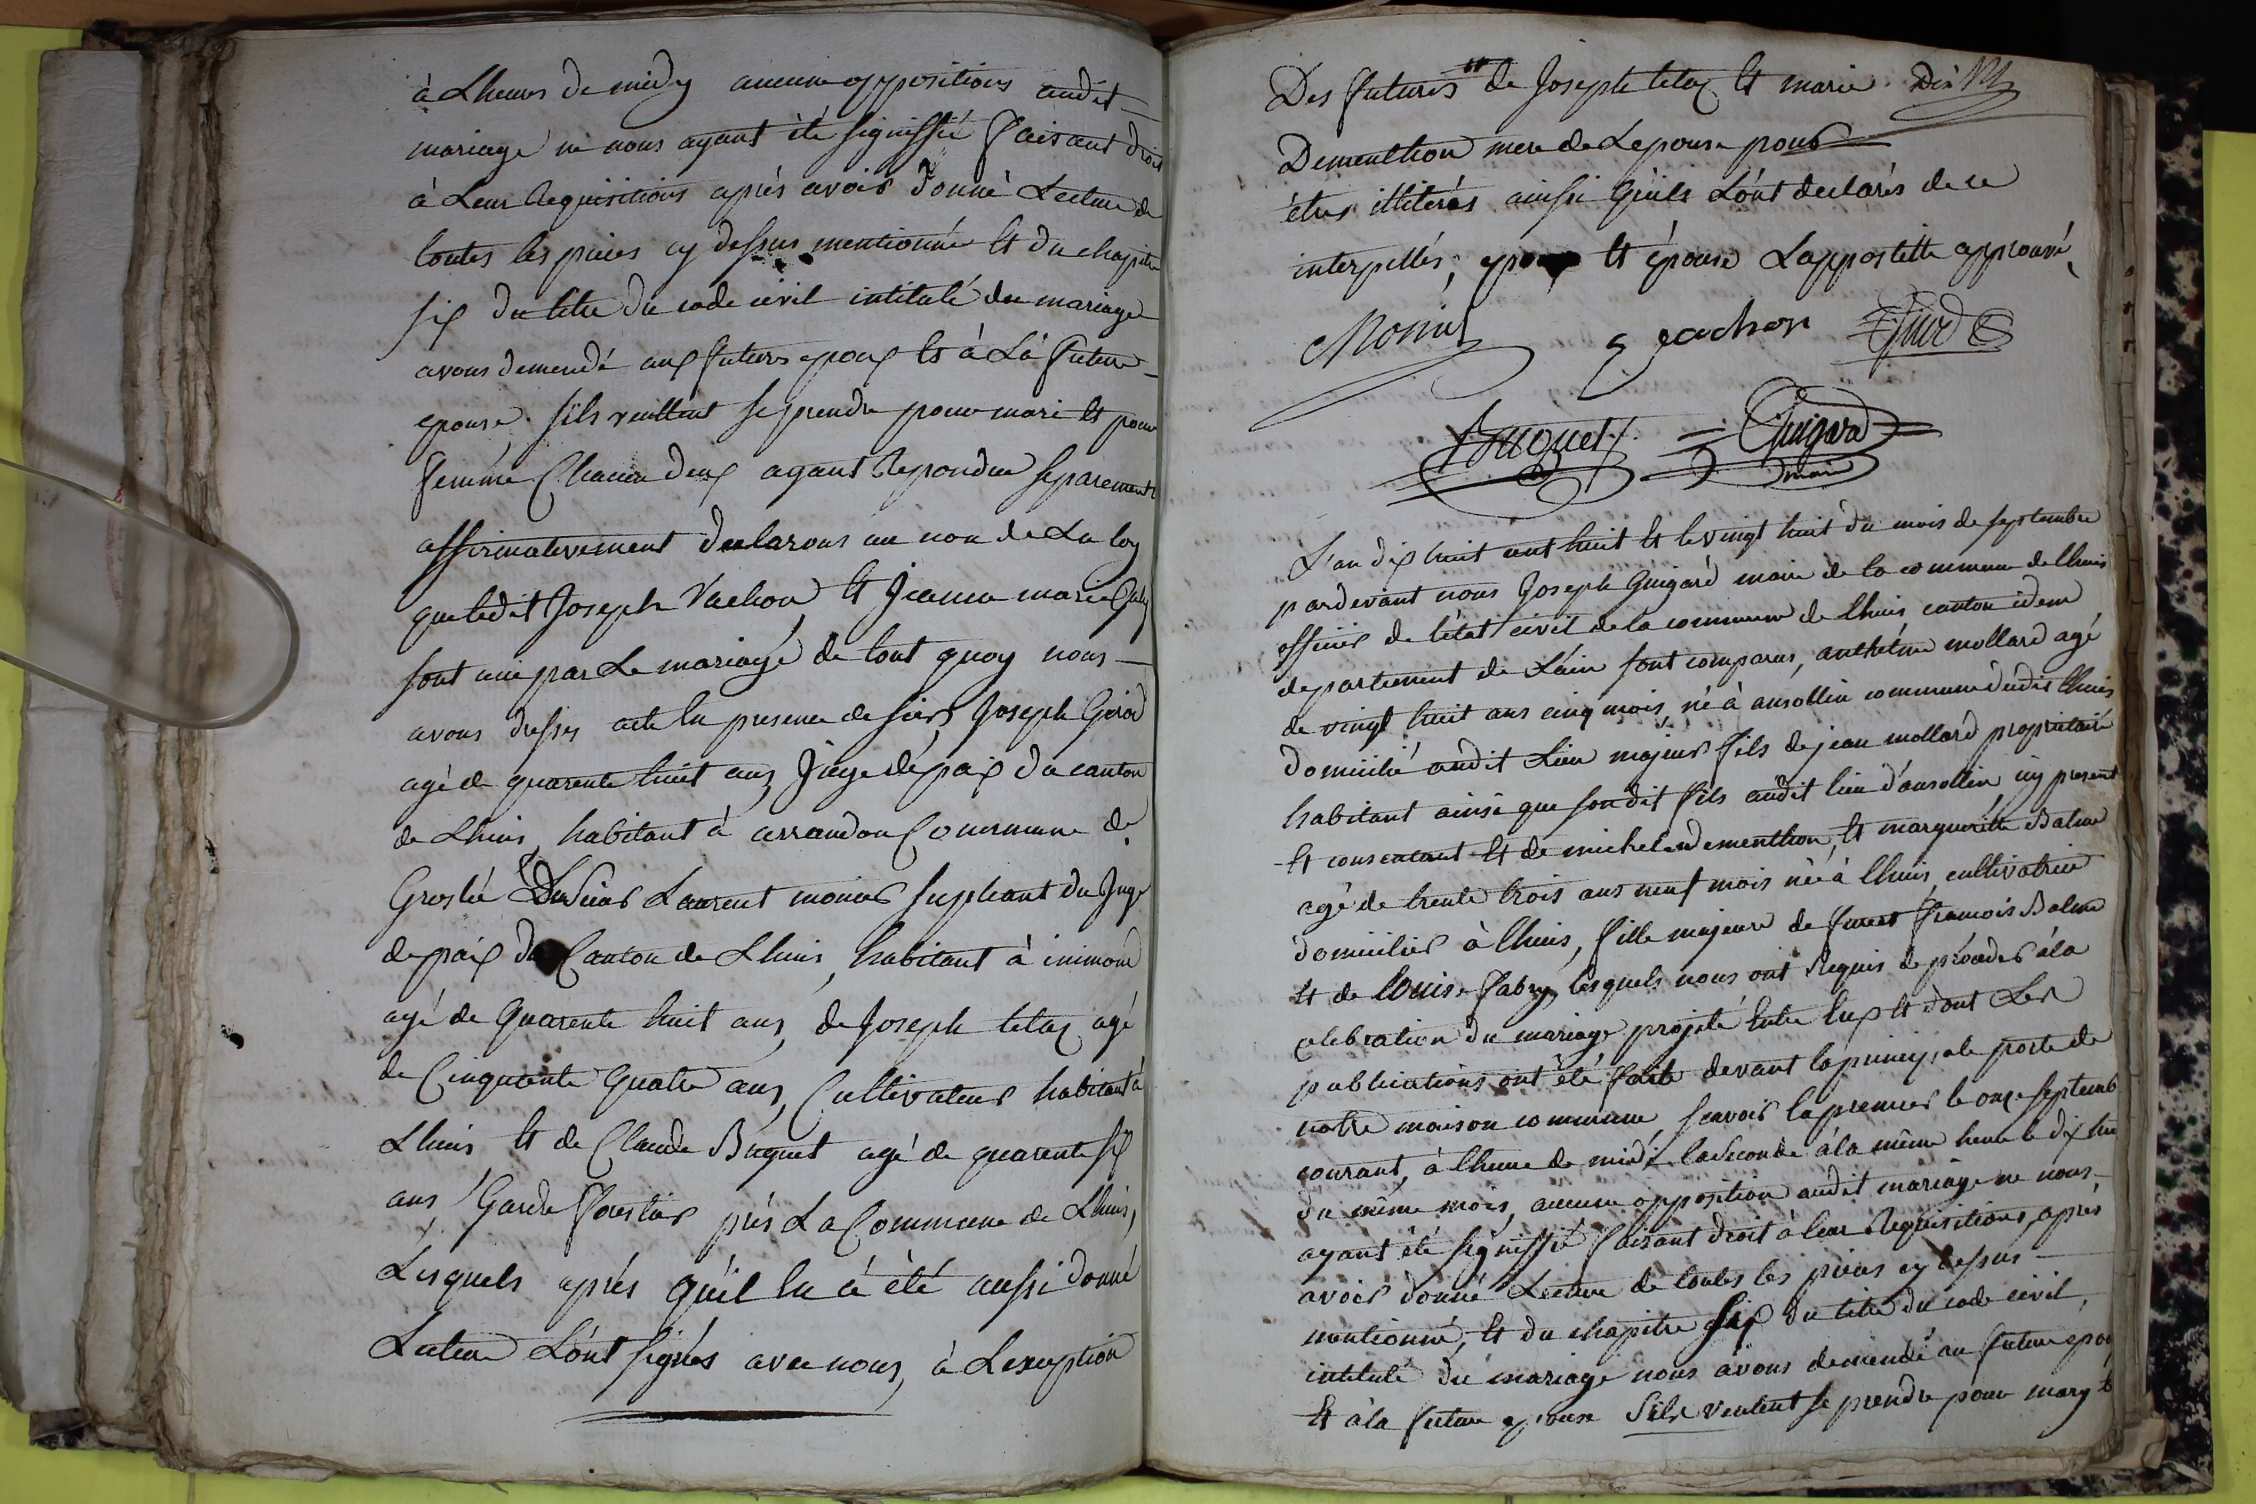 à Lheures de midy aucune oppositions audit
mariage ne nous ayant été signiffié faisant droit
à Leur Requisitions après avoir donné Lecture de
toutes les pièces cy dessus mentionné et du chapitre
six du titre du code civil intitulé du mariage
avons demendé aux futurs epoux et à La future
epouse sils veullent se prendre pour mari et pour
femme Chacun deux ayant Repondue separement
affirmativement declarons au non de La loy
que ledit Joseph Vachon et Jeanne marie
sont uni par Le mariage de tout quoy nous
avons dresses acte En presence de sieurs Joseph Girod
agé de quarente huit ans Juge de paix du canton
de Lhuis, habitant à arrandon Commune de
Groslée Du Sieur Laurent monier supleant du Juge
de paix du Canton de Lhuis, habitant à inimond
agé de quarente huit ans, de Joseph tetaz agé
de Cinquente quatre ans, Cultivateur habitant à
Lhuis et de Claude Buguet agé de quarente six
ans, Garde forestier près La Commune de Lhuis,
Lesquels après qu'il En à été aussi donné
Lecture L'ont signés avec nous, à Lexception
Des futures et de Joseph tetaz et marie
Dementhon mere de Lepouse pour
êtres illiterés ainssi qu'ils L'ont declarés de ce
interpellés, et épouse Lappostille approuvé
Monier Vachon Girod
Buguet Guigard
maire
L'an dix huit cent huit et le vingt huit du mois de septembre
pardevant nous Joseph Guigard maire de la commune de lhuis
officier de l'état civil de la commune de lhuis canton idem
departement de L'ain sont comparus, anthelme mollard agé
de vingt huit ans cinq mois, né à ansollin commune dudit lhuis
domicilié audit Lieu majeur fils de jean mollard propriétaire
habitant ainsi que sondit fils audit lieu d'ansollin icy present
et consentant et de michele dementhon, et margueritte Balme
agé de trente trois ans neuf mois née à lhuis, cultivatrice
domiciliés à lhuis, fille majeure de francois Balme
et de Louise fabry, lesquels nous ont Requis de procéder à la
celebration du mariage projeté Entre Eux et dont Les
publications ont été faite devant la principale porte de
notre maison commune, scavoir la premier le onze septemb
courant, à lheure de midi la Seconde à la même heure le dix hui
du même mois, aucune opposition audit mariage ne nous
ayant été signiffié faisant droit à leur Requisitions, après
avoir donné Lecture de toutes les pièces cy dessus
mentionné, et du chapitre Six du titre du code civil,
intitulé du mariage nous avons demendé au future epou
et à la future epouse Sils veulent se prendre pour mary et